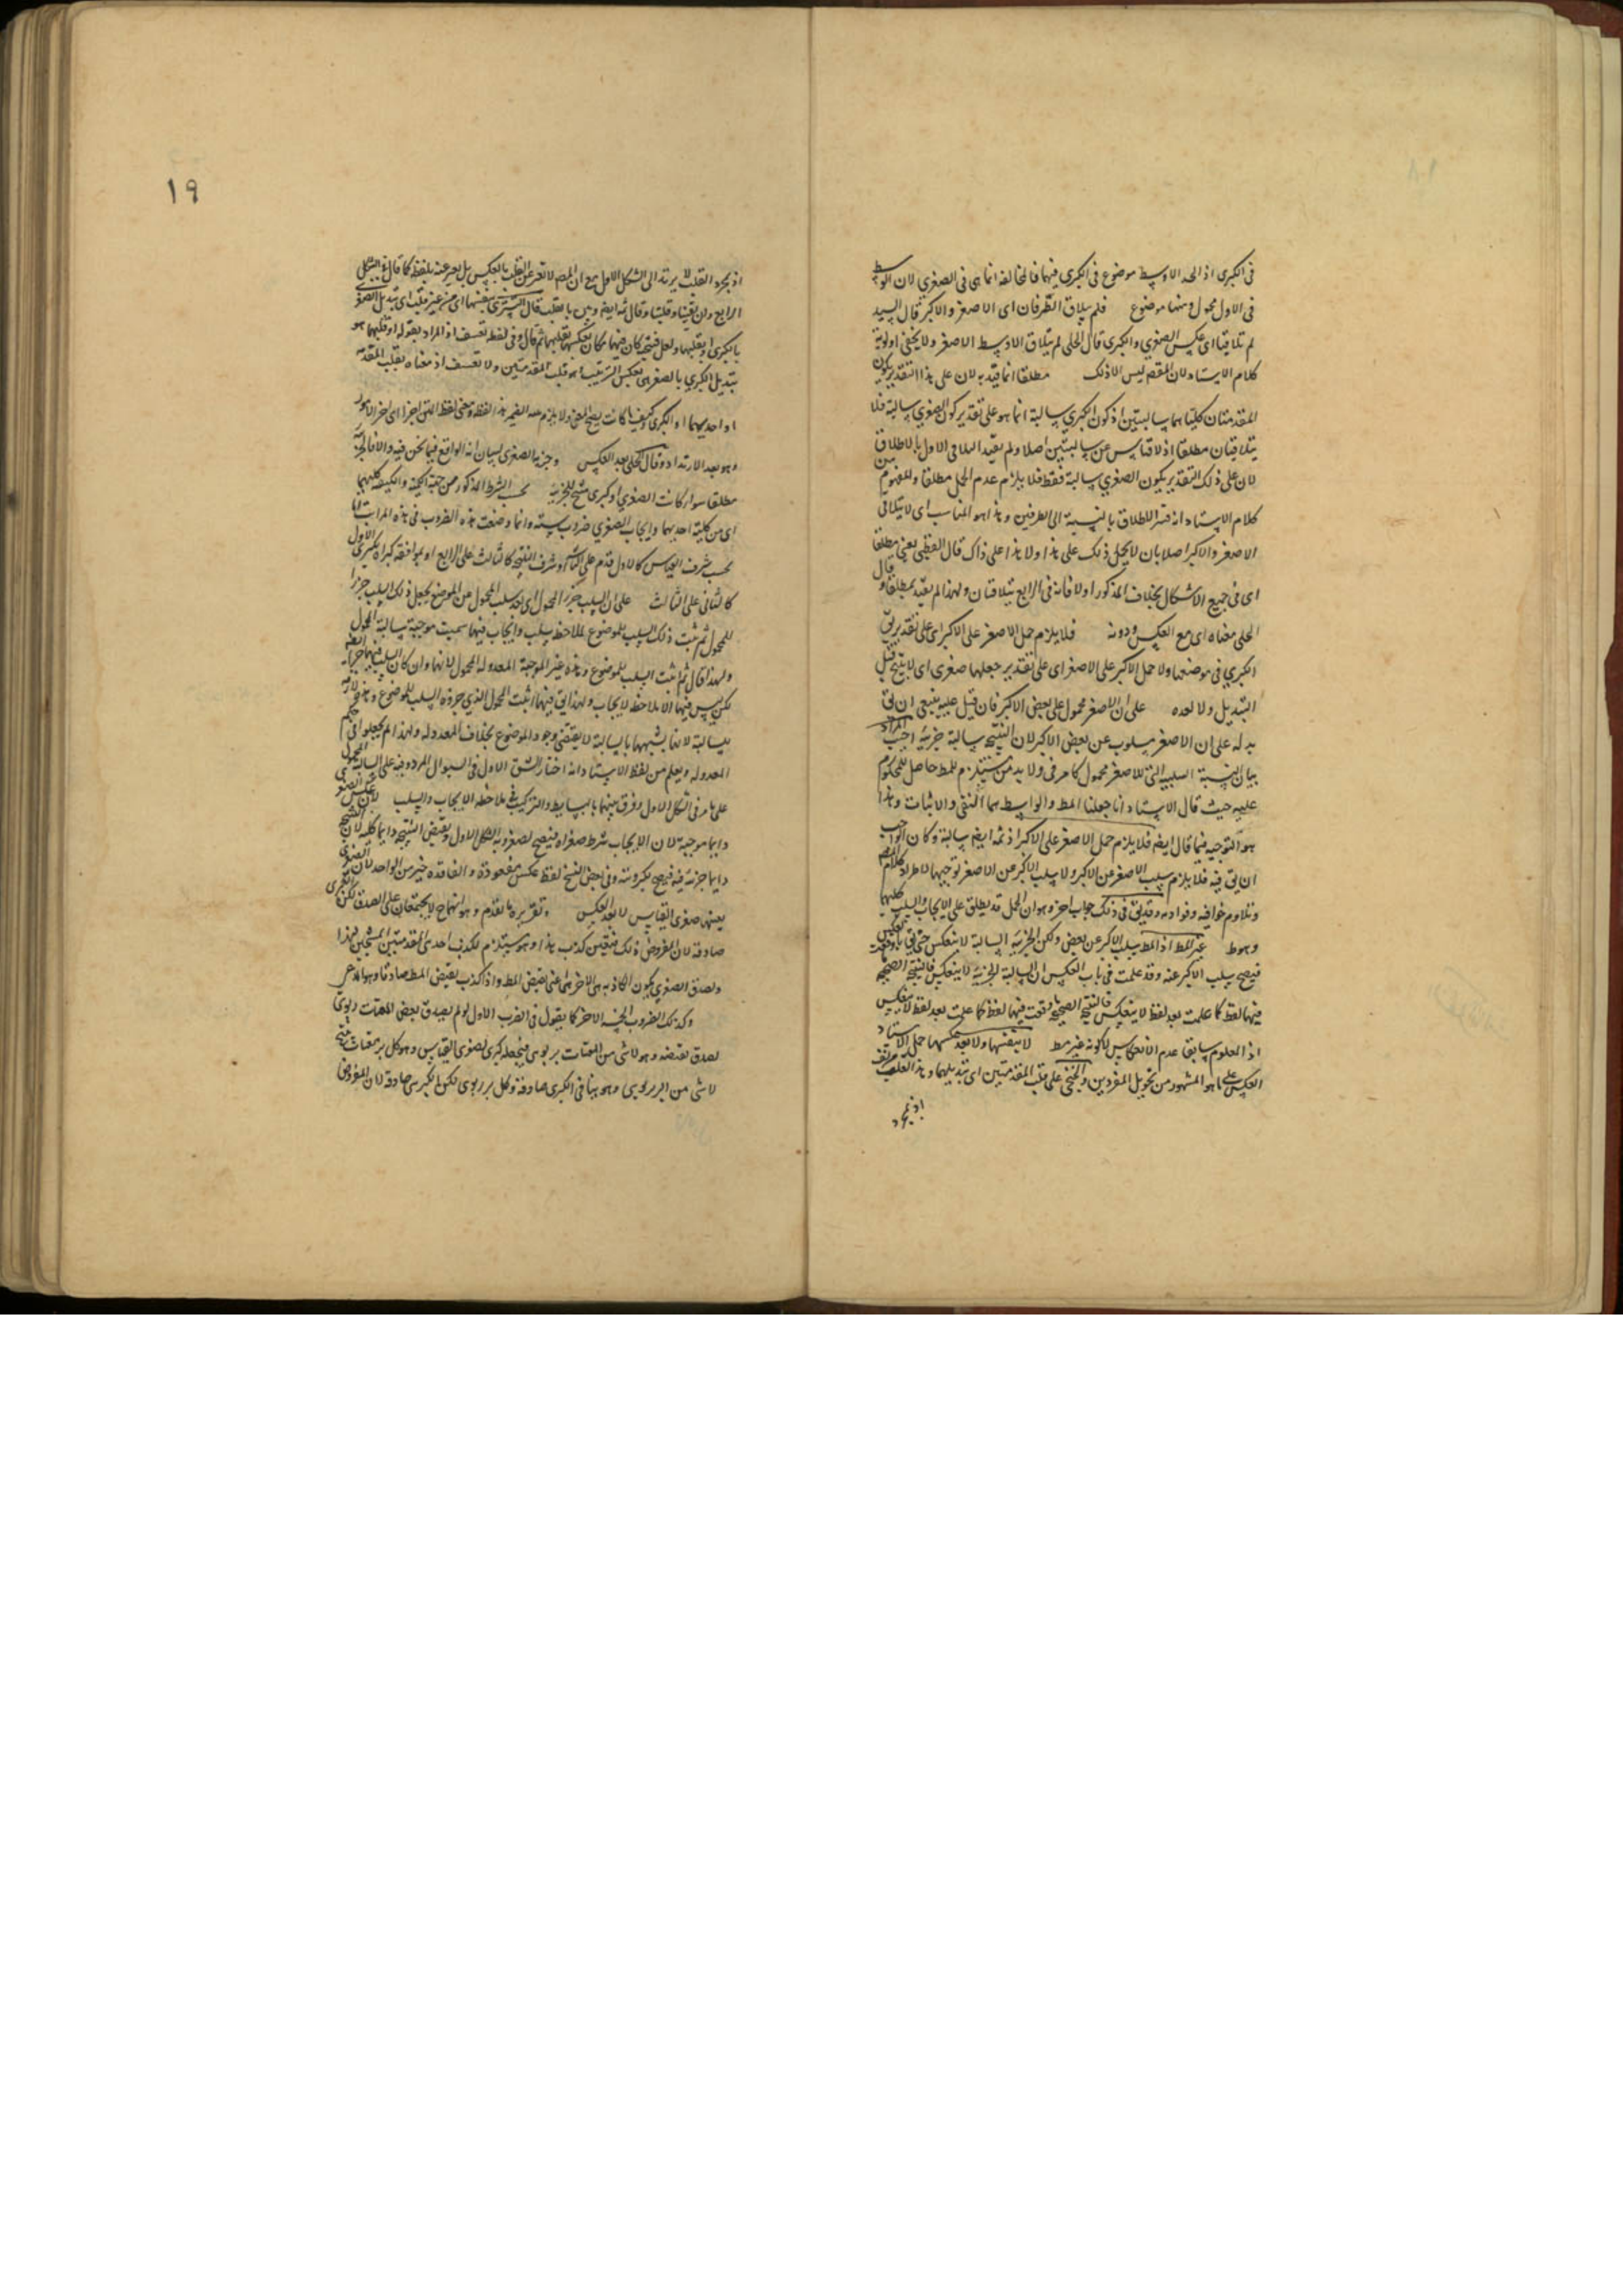 في الكبرى اذ الحد الاوسط موضوع في الكبرى فيهما فالمخالفة انما هى في الصغرى لان الاوسط
في الاول محمول وههنا موضوع فلم يتلاق الطرفان اى الاصغر والاكبر قال السيد
لم تلاقيا اى عكس الصغرى والكبرى قال الحلى لم يتلاق الاوسط الاصغر ولا يخفى اولوية
كلام الاستاد لان المقصم ليس الا ذلك مطلقا انما قيد به لان على هذا التقدير يكون
المقدمتان كلتاهما سالبتين اذ كون الكبرى سالبة انما هو على تقدير كون الصغرى سالبة فلا
يتلاقيان مطلقا اذ لا قياس عن سالبتين اصلا ولم يقيد التلاقى الاول بالاطلاق
لان على ذلك التقدير يكون الصغرى سالبة فقط فلا يلزم عدم الحمل مطلقا والمفهوم من
كلام الاستاد انه فسر الاطلاق بالنسبة الى الطرفين وهذا هو المناسب اى لا يتلاقى
الاصغر والاكبر اصلا بان لا يحمل ذلك على هذا ولا هذا على ذاك قال القطبى يعنى مطلقا
اى في جميع الاشكال بخلاف المذكور اولا فانه في الرابع يتلاقيان ولهذا لم يقيد بمطلقا وقال
الحلى معناه اى مع العكس ودونه فلا يلزم حمل الاصغر على الاكبر اى على تقدير بقى
الكبرى في موضعها ولا حمل الاكبر على الاصغر اى على تقدير جعلها صغرى اى لا ينتج قبل
التبديل ولا بعده على ان الاصغر محمول على بعض الاكبر فان قيل عليه ينبغى ان يق
بدله على ان الاصغر مسلوب عن بعض الاكبر لان النتيجة سالبة جزئية اجيب المراد
بيان النسبة السلبية التى للاصغر محمول كما مر في ولا بد من مستلزم للمط حاصل للمحكوم
عليه حيث قال الاستاد انا جعلنا المط والواسط هما النفى والاثبات وهذا
هو التوجيه فيما قال ايضم فلا يلزم حمل الاصغر على الاكبر اذ ثمه ايضم سالبة وكان الواجب
ان يق فيه فلا يلزم سلب الاصغر عن الاكبر ولا سلب الاكبر عن الاصغر توجيها لاطراد كلام المصم
وتلاوم خوافيه وقوادمه وقد يق في ذلك جواب اخر وهو ان الحمل قد يطلق على الايجاب والسلب كليهما
وهو ط غير المط اذ المط سلب الاكبر عن بعض ولكن الجزئية السالبة لا تنعكس حتى يق
فيصح سلب الاكبر عنه وقد علمت في باب العكس ان السالبة الجزئية لا ينعكس فالنتيجة الصحيحة
فيها لفظ كما علمت بعد لفظ لا ينعكس فالنتيجة الصحيحة وقعت فيها لفظ كما علمت بعد لفظ لا ينعكس
اذ المعلوم سابقا عدم الانعكاس لا كونه غير مط لا بنفسها ولا بعد عكسها حمل الاستاد
العكس على ما هو المشهور من تحويل المفردين والخنجى على قلب المقدمتين اى تبديلهما وهذا القلب
اذ بمجرد
١٩
اذ بمجرد القلب لا يرتد الى الشكل الاول مع ان المصم لا تعبر عن القلب بالعكس بل يعبر عنه بلفظه كما قال في الشكل
الرابع وان بقيتا وقلبتا وقال ثمه ايضم وبين بالقلب قال التسترى بنفسها اى من غير قلب اى تبديل الصغرى
بالكبرى او بقلبها ولعل نسخته كان فيها مكان بعكسها بقلبها ثم قال وفي لفظه تعسف اذ المراد بقوله او قلبهما هو
بتبديل الكبرى بالصغرى بعكس الترتيب وهو قلب المقدمتين ولا تعسف اذ معناه بقلب المقدمة
او احديهما او الكبرى وكيف ما كانت يصح المعنى ولا يلزم منه الضمير
وهو بعد الارتداد وقال الحلى بعد العكس وجزئية الصغرى لبيان انه الواقع فيما نحن فيه والا فالجزئية
مطلقا سواء كانت الصغرى او كبرى منتج للجزئية بحسب الشرط المذكور من جهة الكمية والكيفية كليهما
اى من كلية احديهما وايجاب الصغرى ضروب ستة وانما وضعت هذه الضروب في هذه المراتب اما
بحسب شرف القياس كالاول قدم على الثانى او شرف النتيجة كالثالث على الرابع او لموافقة كبراه لكبرى الاول
كالثانى على الثالث على ان السلب جزء المحمول اى اخذ سلب المحمول من الموضوع بجعل ذلك السلب جزءا
للمحمول ثم ثبت ذلك السلب للموضوع بملاحظ سلب وايجاب فيها سميت موجبة سالبة المحمول
ولهذا قال ثم ثبت السلب للموضوع وهذه غير الموجبة المعدولة المحمول لانها وان كان السلب فيها جزءا ايضم
لكن ليس فيها الا ملاحظ الايجاب ولهذا يق فيها اثبت المحمول الذى جزؤه السلب للموضوع
بسالبة لانها بشبهها بالسالبة لا يقتضى وجود الموضوع بخلاف المعدولة ولهذا لم يجعلوا في حكم
المعدولة ويعلم من لفظ الاستاد انه اختار الشق الاول في السؤال المردود فيه على السالبة المحمول
على ما مر في الشكل الاول وفرق بينهما بالبسايط والتركيب في ملاحظة الايجاب والسلب لان عكس الصغرى
دايما موجبة لان الايجاب شرط صغراه فيصح لصغروية الشكل الاول ونقيض النتيجة دايما كلية لان النتيجة
دايما جزئية فيه فيصح لكبرويته وفي بعض النسخ لفظ عكس مفقودة والفاقدة خير من الواجدة لان الصغرى
بعينها صغرى القياس لا بعد العكس وتقريره ما تقدم وهو انهما لا يجتمعان على الصدق لكن الكبرى
صادقة لان المفروض ذلك فتعين كذب هذا وهو يستلزم لكذب احدى المقدمتين المنتجتين لهذا
وبصدق الصغرى يكون الكاذبة هى الاخرى اعنى نقيض المط واذا كذب نقيض المط صادقا وهو المدعى
وكذلك الضروب الخمسة الاخر كما يقول في الضرب الاول لو لم يصدق بعض المقتات ربوى
لصدق نقيضه وهو لا شى من المقتات بربوى فيجعله كبرى لصغرى القياس وهو كل بر مقتات ينتج
لا شى من البر بربوى وهو ينافى الكبرى صادقة وكل بر ربوى لكن الكبرى صادقة لان المفروض